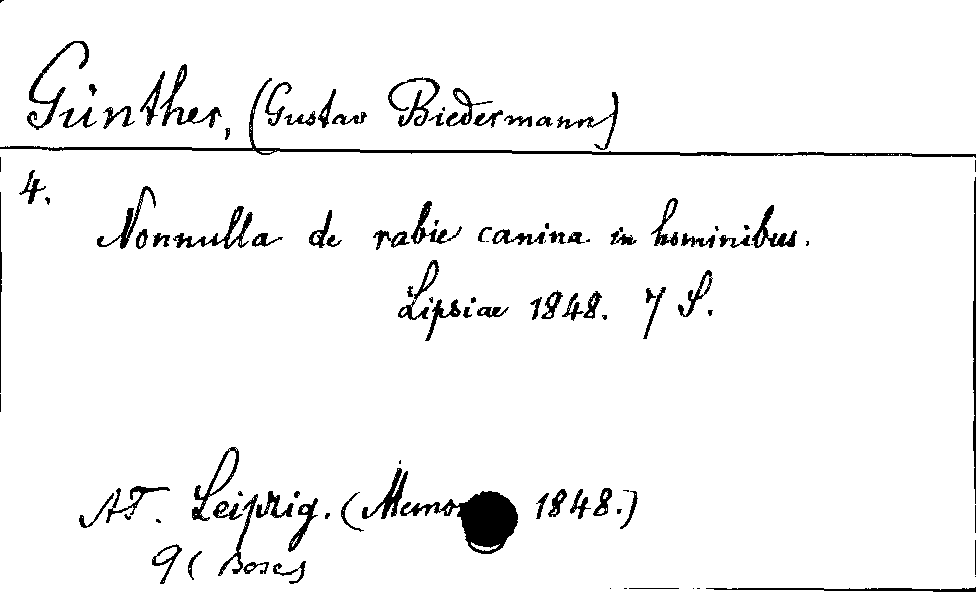 Günther, (Gustav Biedermann)
4.
Nonnulla de rabie canina in hominibus.
Lipsiae 1848. 7 S.
AT. Leipzig. (Memor 1848.)
9( Bose)